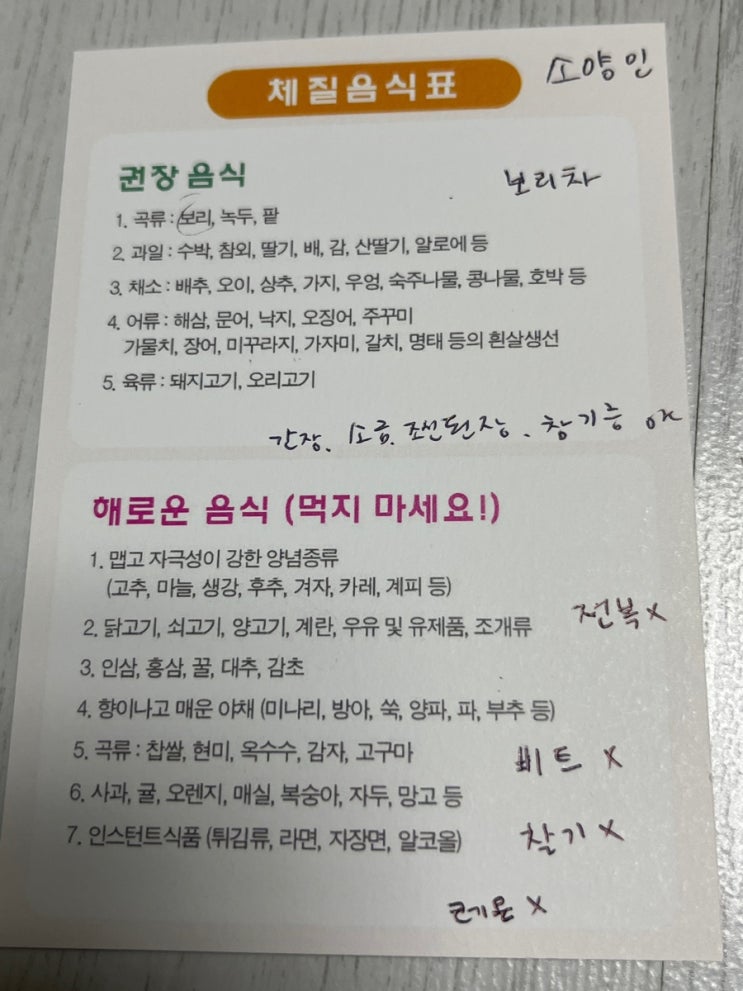 체질음식표
소양인
권장 음식
보리차
1. 곡류 : 보리, 녹두, 팥
2. 과일 : 수박, 참외, 딸기, 배, 감, 산딸기, 알로에 등
3. 채소 : 배추, 오이, 상추, 가지, 우엉, 숙주나물, 콩나물, 호박 등
4. 어류 : 해삼, 문어, 낙지, 오징어, 주꾸미
가물치, 장어, 미꾸라지, 가자미, 갈치, 명태 등의 흰살생선
5. 육류 : 돼지고기, 오리고기
간장, 소금, 조선된장, 참기름 ok
해로운 음식 (먹지 마세요!)
1. 맵고 자극성이 강한 양념종류
(고추, 마늘, 생강, 후추, 겨자, 카레, 계피 등)
전복 x
2. 닭고기, 쇠고기, 양고기, 계란, 우유 및 유제품, 조개류
3. 인삼, 홍삼, 꿀, 대추, 감초
4. 향이나고 매운 야채 (미나리, 방아, 쑥, 양파, 파, 부추 등)
5. 곡류 : 찹쌀, 현미, 옥수수, 감자, 고구마
비트 x
6. 사과, 귤, 오렌지, 매실, 복숭아, 자두, 망고 등
7. 인스턴트식품 (튀김류, 라면, 자장면, 알코올)
찰기 x
x